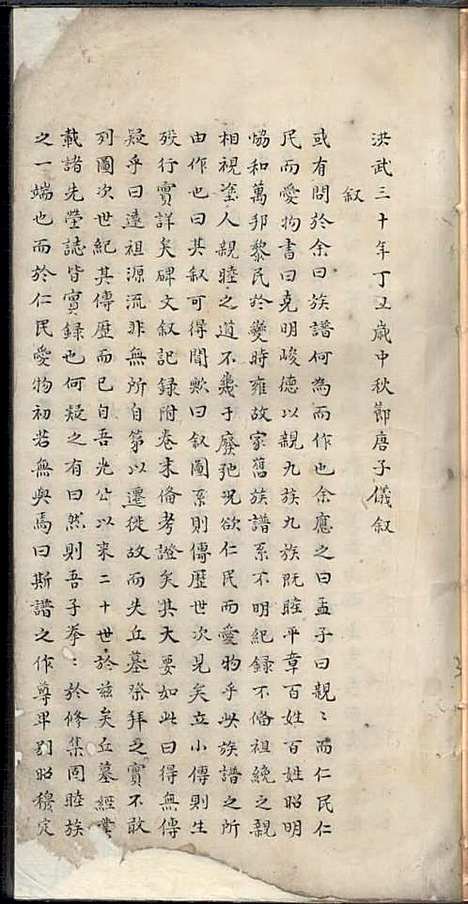 洪武三十年丁丑歲中秋節唐子儀叙
叙
或有問於余曰族譜何為而作也余應之曰孟子曰親〻而仁民仁
民而愛物書曰克明峻德以親九族九族既睦平章百姓百姓昭明
恊和萬邦黎民於變時雍故家舊族譜系不明紀錄不偹祖絻之親
相視塗人親睦之道不幾于廢弛况欲仁民而愛物乎此族譜之所
由作也曰其叙可得聞歟曰叙圖系則傳歷世次見矣立小傳則生
殁行實詳矣碑文叙記録附卷末偹考證矣其大要如此曰得無傳
疑乎曰遠祖源流非無所自第以遷徙故而失丘墓祭拜之實不敢
列圖次世紀其傳歷而已自吾光公以来二十世於兹矣丘墓經
載諸先塋誌皆實録也何疑之有曰然則吾子拳〻於修集同睦族
之一端也而於仁民愛物初若無與焉曰斯譜之作尊卑别昭穆定